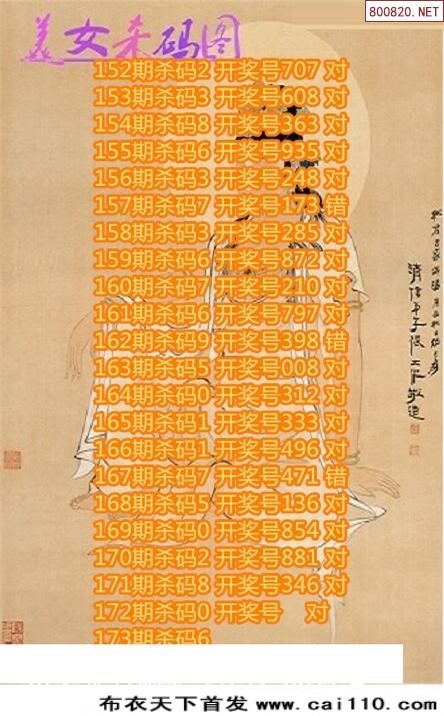 800820.NET
美女杀码图
152期杀码2 开奖号707 对
153期杀码3 开奖号608 对
154期杀码8 开奖号363 对
155期杀码6 开奖号935 对
156期杀码3 开奖号248 对
157期杀码7 开奖号173 错
158期杀码3 开奖号285 对
159期杀码6 开奖号872 对
160期杀码7 开奖号210 对
161期杀码6 开奖号797 对
162期杀码9 开奖号398 错
163期杀码5 开奖号008 对
164期杀码0 开奖号312 对
165期杀码1 开奖号333 对
166期杀码1 开奖号496 对
167期杀码7 开奖号471 错
168期杀码5 开奖号136 对
169期杀码0 开奖号854 对
170期杀码2 开奖号881 对
171期杀码8 开奖号346 对
172期杀码0 开奖号 对
173期杀码6
布衣天下首发 www.cai110.com